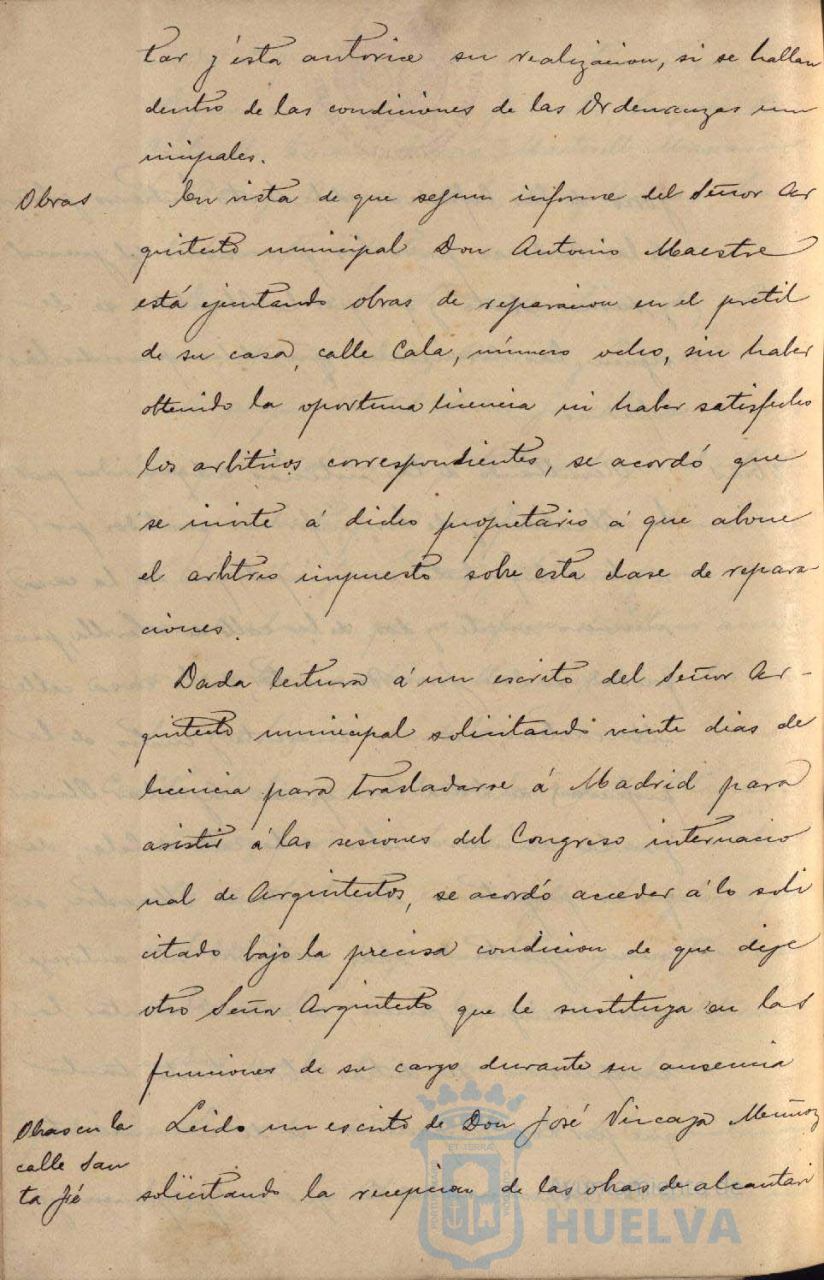 tar y ésta autorice su realizacion, si se hallan
dentro de las condiciones de las Ordenanzas mu
nicipales.
Obras
En vista de que segun informe del Señor Ar
quitecto municipal Don Antonio Maestre
está ejecutando obras de reparacion en el pretil
de su casa, calle Cala, número ocho, sin haber
obtenido la oportuna licencia ni haber satisfecho
los arbitrios correspondientes, se acordó que
se invite á dicho propietario á que abone
el arbitrio impuesto sobre esta clase de repara-
ciones.
Dada lectura á un escrito del Señor Ar-
quitecto municipal solicitando veinte dias de
licencia para trasladarse á Madrid para
asistir á las sesiones del Congreso internacio
nal de Arquitectos, se acordó acceder á lo soli
citado bajo la precisa condicion de que deje
otro Señor Arquitecto que le sustituya en las
funciones de su cargo durante su ausencia
Obras en la
calle San
ta Fé
Leido un escrito de Don José Vizcaya Muñoz
solicitando la recepcion de las obras de alcantari
HUELVA